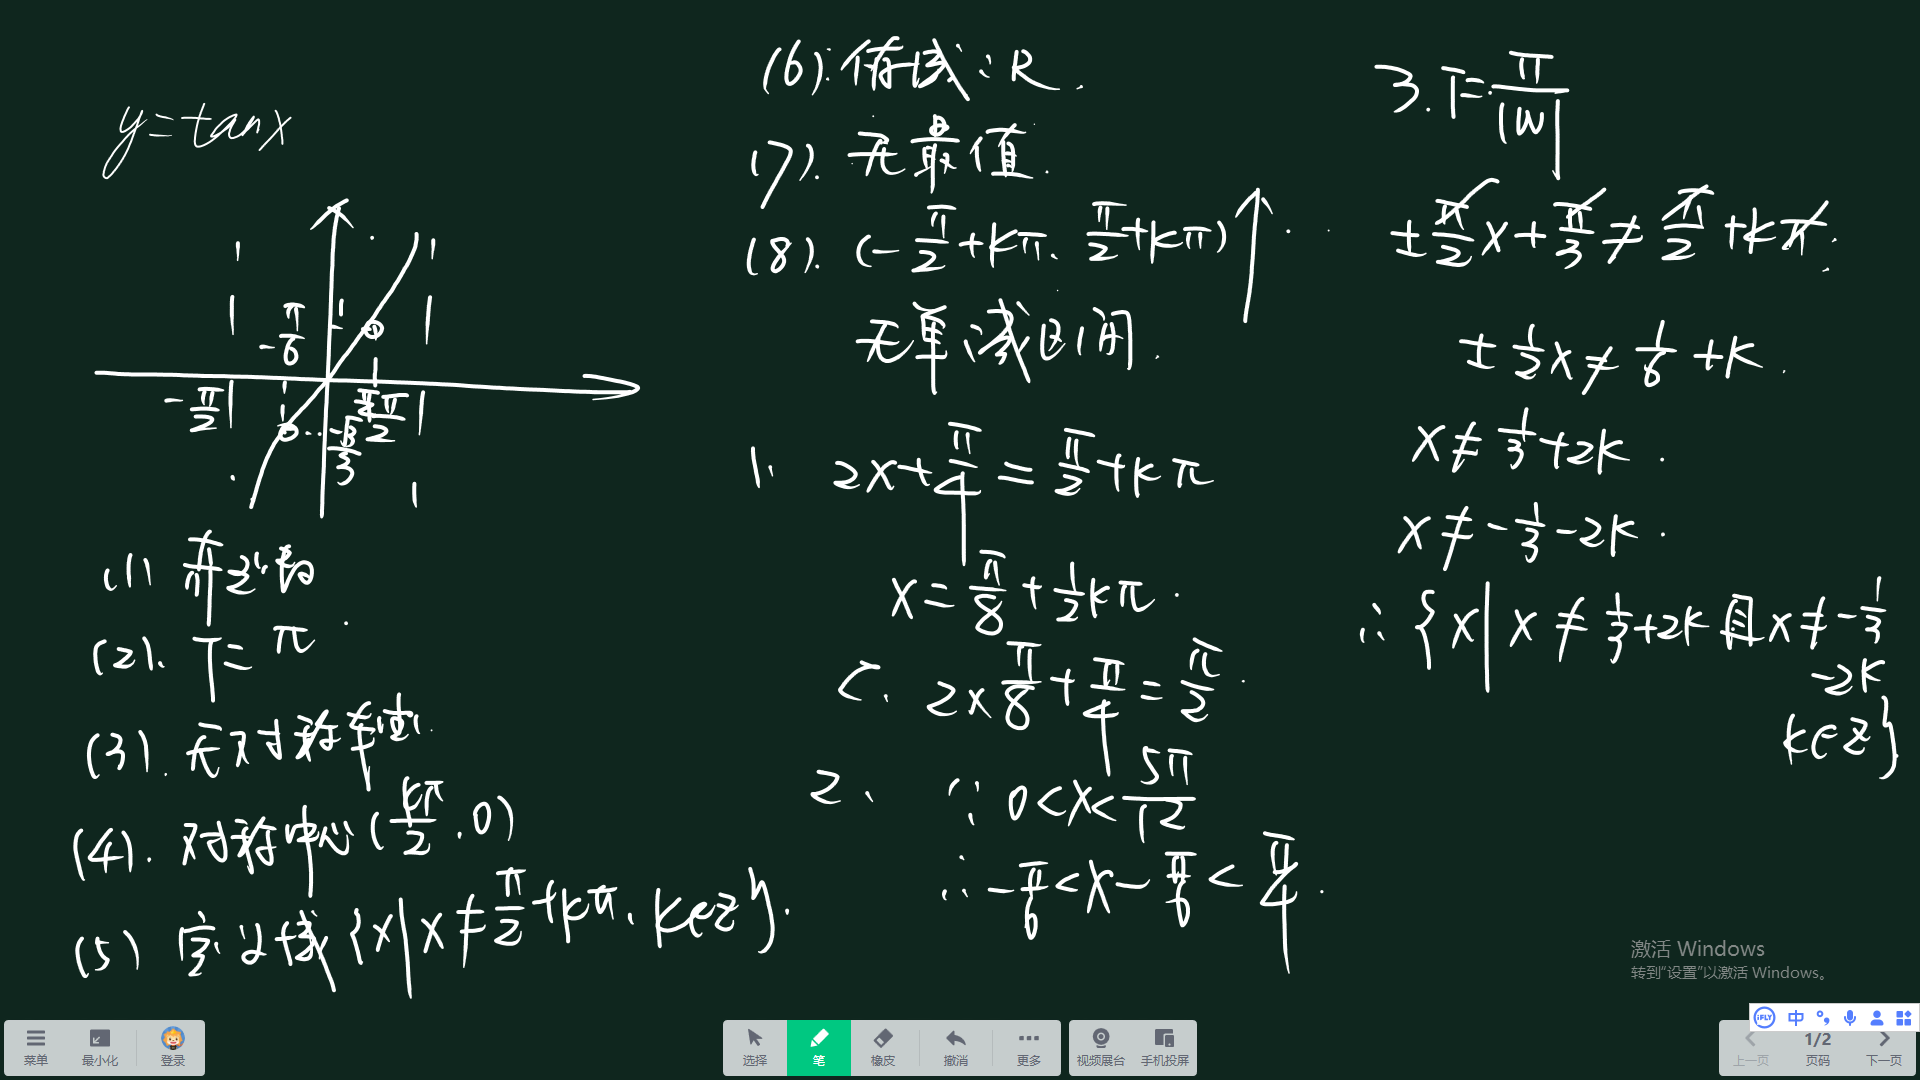 y=tanx
-π/6
-π/2
π/4
π/2
-√3/3
(1) 奇函数
(2). T=π
(3). 无对称轴
(4). 对称中心(kπ/2,0)
(5) 定义域{x|x≠π/2+kπ,k∈Z}.
(6). 值域:R.
(7). 无最值.
(8). (-π/2+kπ、π/2+kπ)↑
无单减区间.
1、2x+π/4=π/2+kπ
x=π/8+1/2kπ.
C. 2×π/8+π/4=π/2.
2、∵0<x<5π/12
∴-π/6<x-π/6<π/4.
3. T=π/|W|
±π/2x+π/3≠π/2+kπ.
±1/2x≠1/6+k.
x≠1/3+2k.
x≠-1/3-2k.
∴{x|x≠1/3+2k且x≠-1/3
-2k
k∈Z}
激活 Windows
转到“设置”以激活 Windows。
菜单 最小化 登录 选择 笔 橡皮 撤消 更多 视频展台 手机投屏 上一页 1/2 页码 下一页
iFLY 中